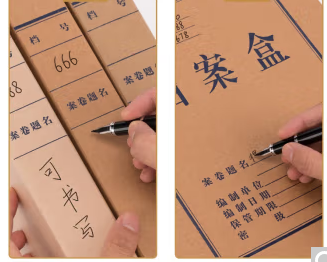 档 号
档 号
666
88
案卷题名
案卷题名
案卷题名
可书写
678
案盒
案卷题名
编制单位
编制日期
保管期限
密 级